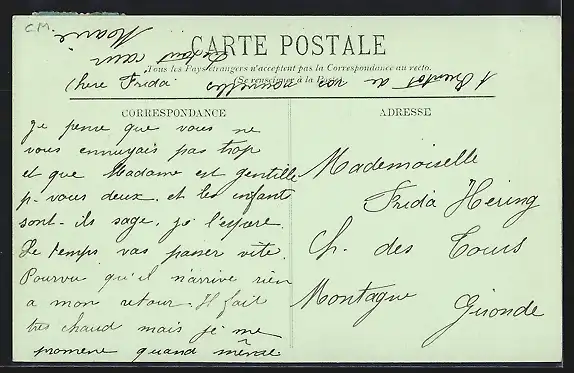 C.M.
CARTE POSTALE
Tous les Pays étrangers n'acceptent pas la Correspondance au recto.
(Se renseigner à la Poste)
CORRESPONDANCE
Chere Frida
Je pense que vous ne
vous ennuyais pas trop
et que Madame est gentille
p. vous deux. et les enfants
sont-ils sage, je l'espere.
Le temps vas passer vite.
Pourvu qu'il n'arrive rien
a mon retour. Il fait
tres chaud mais je me
promene quand même
A Bientot de vos nouvelles
Marie
ADRESSE
Mademoiselle
Frida Hering
Ch. des Tours
Montagne
Gironde